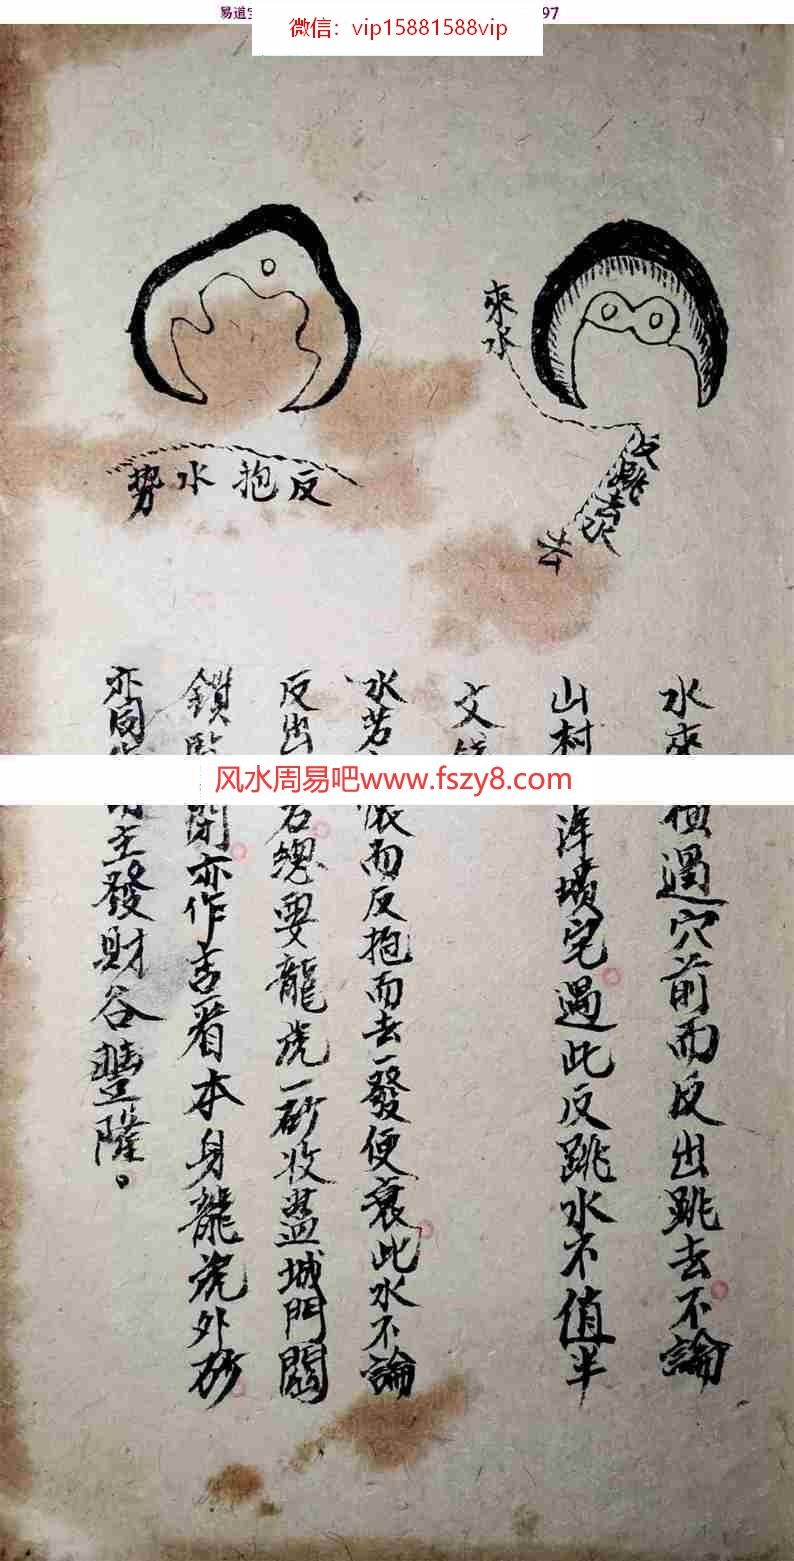 易道
97
微信：vip15881588vip
來水
反跳
去
反抱水勢
水來
過穴前而反出跳去不論
山村
洋墳宅遇此反跳水不值半
文
水若
懷而反抱而去一發便衰此水不論
反出
若總要龍虎一砂收蓋城門關
鎖
閉亦作吉看本身龍虎外砂
亦同
主發財谷豐隆。
风水周易吧www.fszy8.com